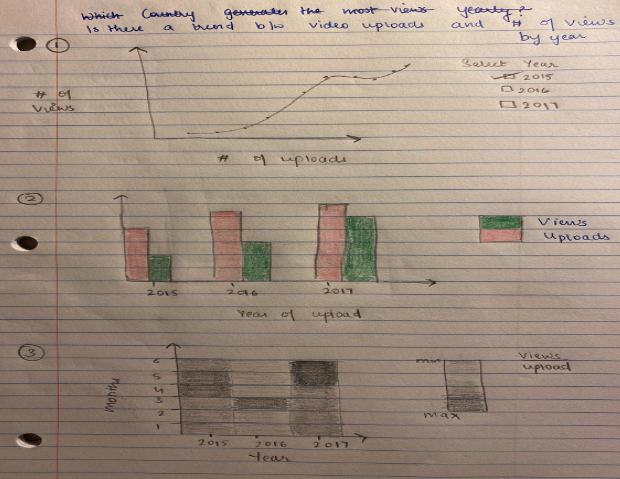 Which Country generates the most views yearly?
Is there a trend b/w video uploads and # of views
by year
1
# of
Views
# of uploads
Select Year
2015
2016
2017
2
2015 2016 2017
Year of upload
Views
Uploads
3
Month
6
5
4
3
2
1
2015 2016 2017
Year
min
max
Views
upload